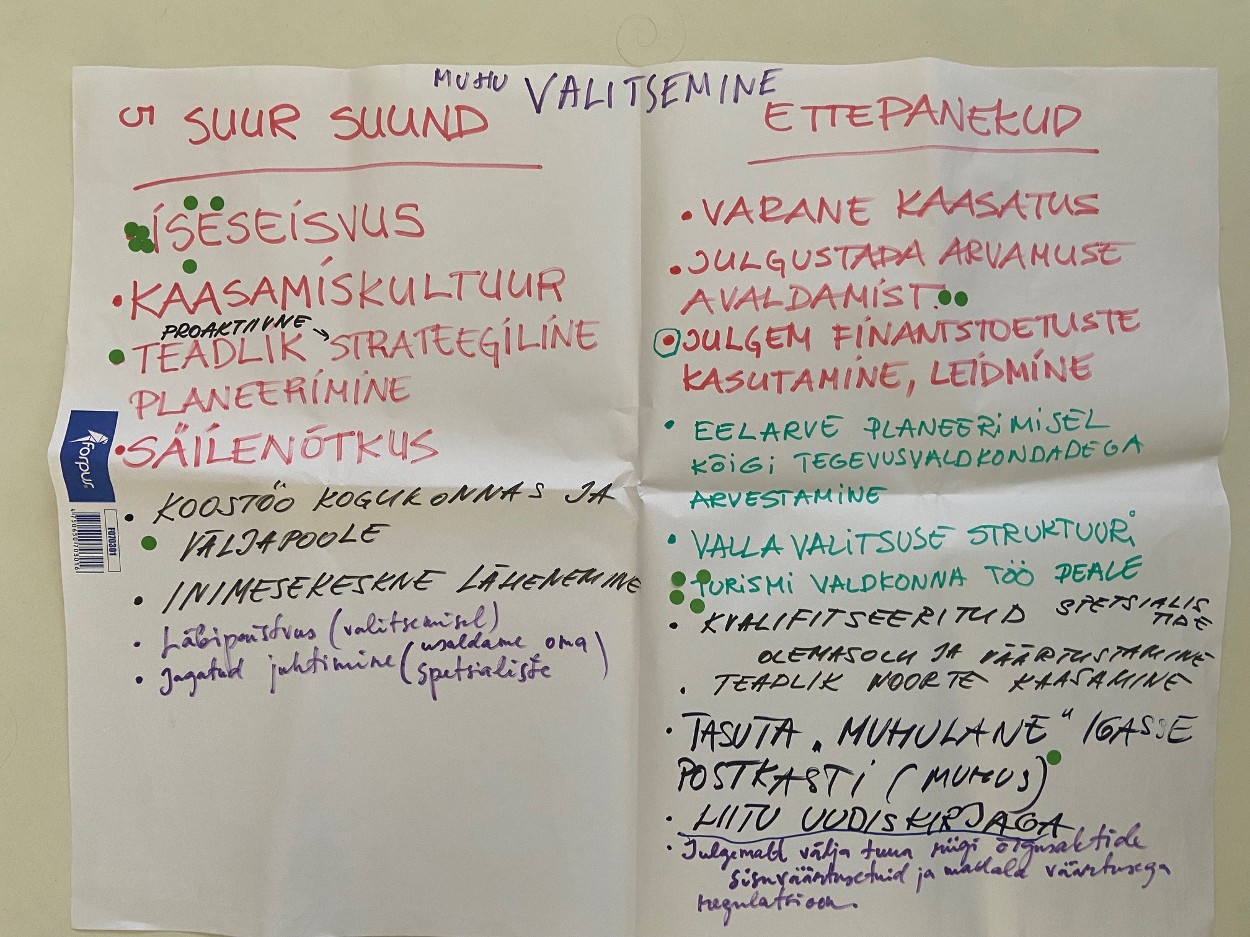 MUHU VALITSEMINE
5 SUUR SUUND
ISESEISVUS
KAASAMISKULTUUR
PROAKTIIVNE
TEADLIK STRATEEGILINE
PLANEERIMINE
SÄILENÕTKUS
KOOSTÖÖ KOGUKONNAS JA
VÄLJAPOOLE
INIMESEKESKNE LÄHENEMINE
Läbipaistvus (valitsemisel)
Jagatud juhtimine (usaldame oma
spetsialiste)
forpus
FO70301
ETTEPANEKUD
VARANE KAASATUS
JULGUSTADA ARVAMUSE
AVALDAMIST
JULGEM FINANTSTOETUSTE
KASUTAMINE, LEIDMINE
EELARVE PLANEERIMISEL
KÕIGI TEGEVUSVALDKONDADEGA
ARVESTAMINE
VALLAVALITSUSE STRUKTUURI
TURISMI VALDKONNA TÖÖ PEALE
KVALIFITSEERITUD SPETSIALIS
TIDE
OLEMASOLU JA VÄÄRTUSTAMINE
TEADLIK NOORTE KAASAMINE
TASUTA „MUHULANE" IGASSE
POSTKASTI (MUHUS)
LIITU UUDISKIRJAGA
Julgemalt välja tuua riigi õigusaktide
sisuväärtusetuid ja madala väärtusega
regulatsioon.